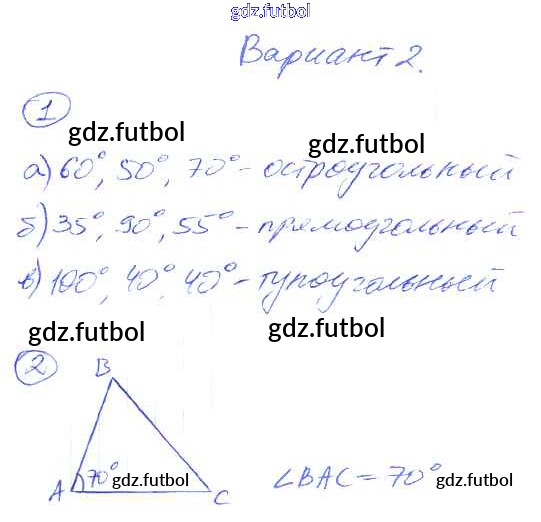 gdz.futbol
Вариант 2.
1
gdz.futbol gdz.futbol
а) 60°, 50°, 70° - остроугольный
б) 35°, 90°, 55° - прямоугольный
в) 100°, 40°, 40° - тупоугольный
gdz.futbol gdz.futbol
2 B
70° gdz.futbol ∠BAC = 70° gdz.futbol
A C